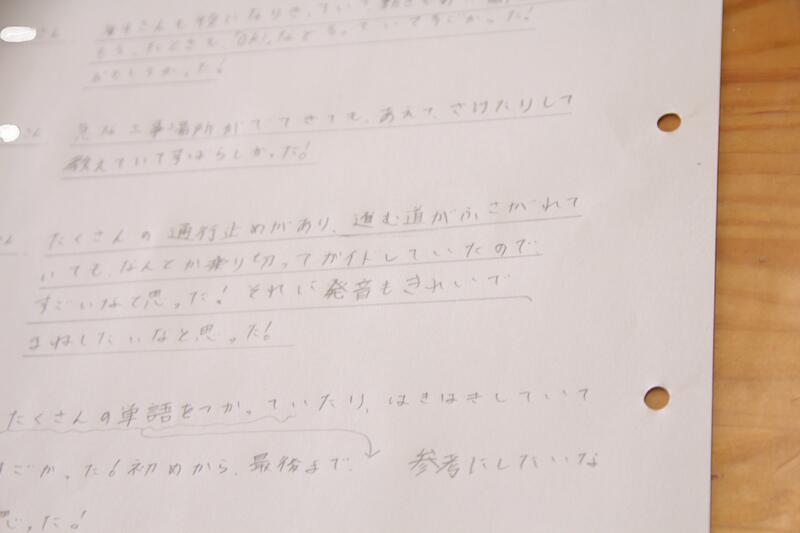 さん 相手さんも役になりきっていて動きも
もう、たくさん、"OK!"などもっていてすごかった!
おもしろかった!
さん 急な工事場所がでてきても、あえて、さけたりして
教えていてすばらしかった!
さん たくさんの通行止めがあり、進む道がふさがれて
いても、なんとか乗り切ってガイドしていたので、
すごいなと思った! それに発音もきれいで
まねしたいなと思った!
たくさんの単語をつかっていたり、はきはきしていて
すごかった!初めから、最後まで、 参考にしたいな
感じった!